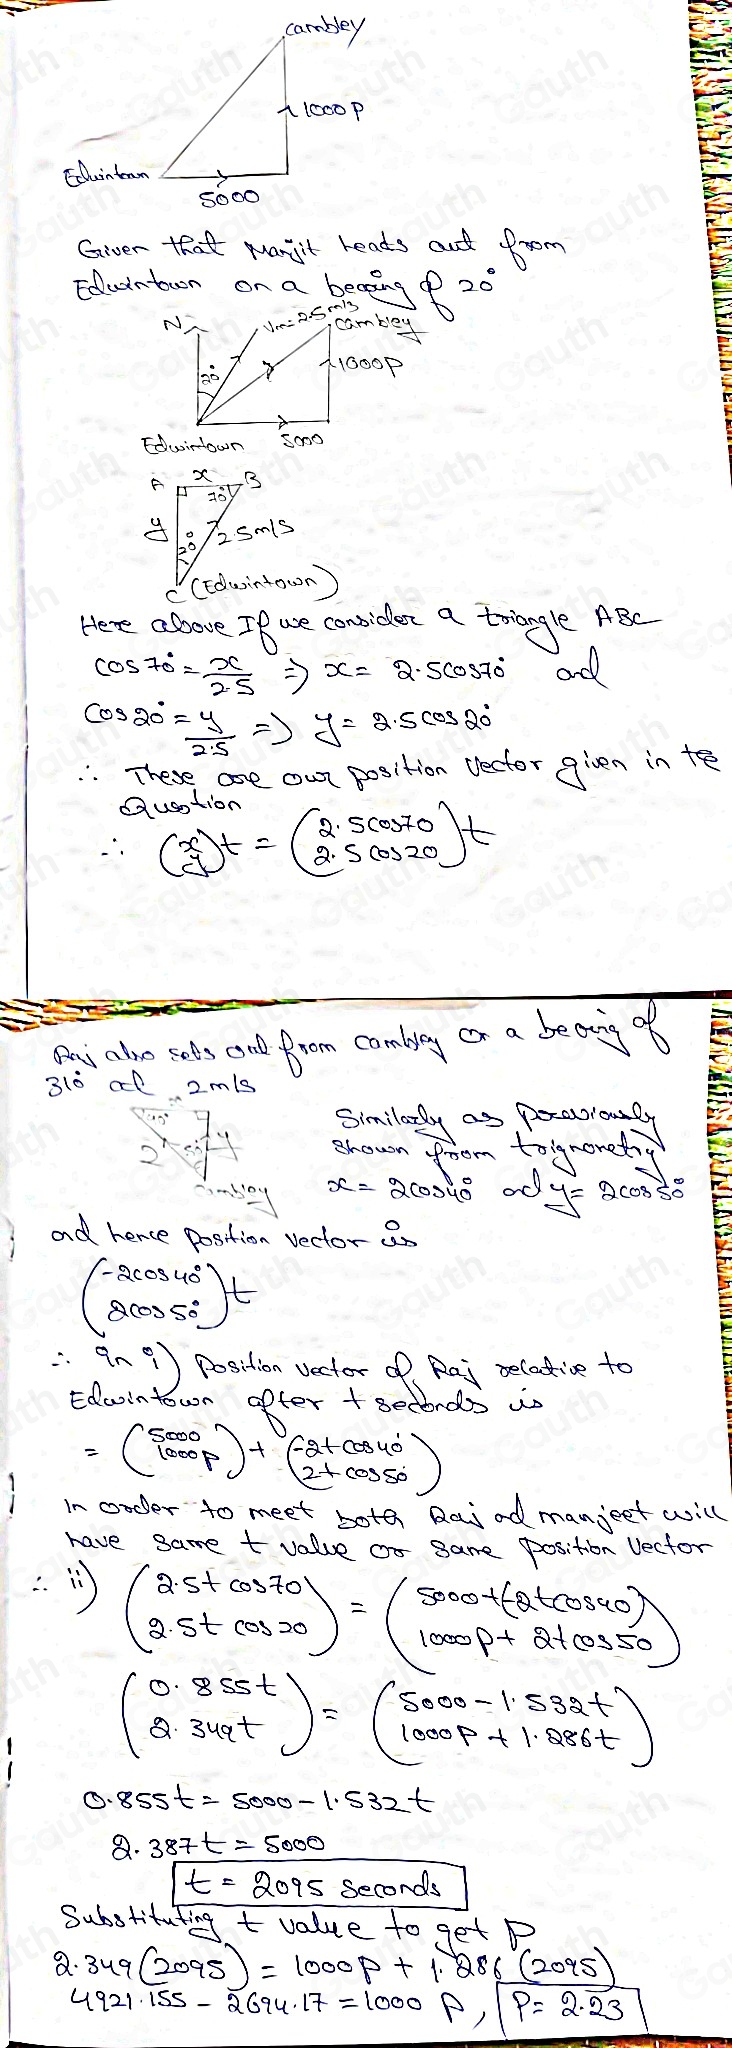 Cambley
1000P
Edwintown
5000
Given that Manjit heads out from
Edwintown on a bearing of 20°
N
Vm=2.5m/s
Cambley
20°
1000P
Edwintown
5000
A x B
70°
y
20°
2.5m/s
C (Edwintown)
Here above If we consider a triangle ABC
cos70° = x/2.5 => x = 2.5cos70° and
cos20° = y/2.5 => y = 2.5cos20°
∴ These are our position vector given in the
Question
∴ (x y)t = (2.5cos70 2.5cos20)t
Raj also sets out from Cambley on a bearing of
310° at 2m/s
40°
2
50°
y
Cambley
Similarly as previously
shown from trignometry
x = 2cos40° and y = 2cos50°
and hence position vector is
(-2cos40° 2cos50°)t
∴ In i) Position vector of Raj relative to
Edwintown after t seconds is
= (5000 1000P) + (-2tcos40° 2tcos50°)
In order to meet both Raj ad manjeet will
have same t value or same position vector
∴ ii) (2.5tcos70 2.5tcos20) = (5000+(-2tcos40) 1000P+2tcos50)
(0.855t 2.349t) = (5000-1.532t 1000P+1.286t)
0.855t = 5000-1.532t
2.387t = 5000
t = 2095 seconds
Substituting t value to get P
2.349(2095) = 1000P + 1.286(2095)
4921.155 - 2694.17 = 1000P, P = 2.23
Gauth